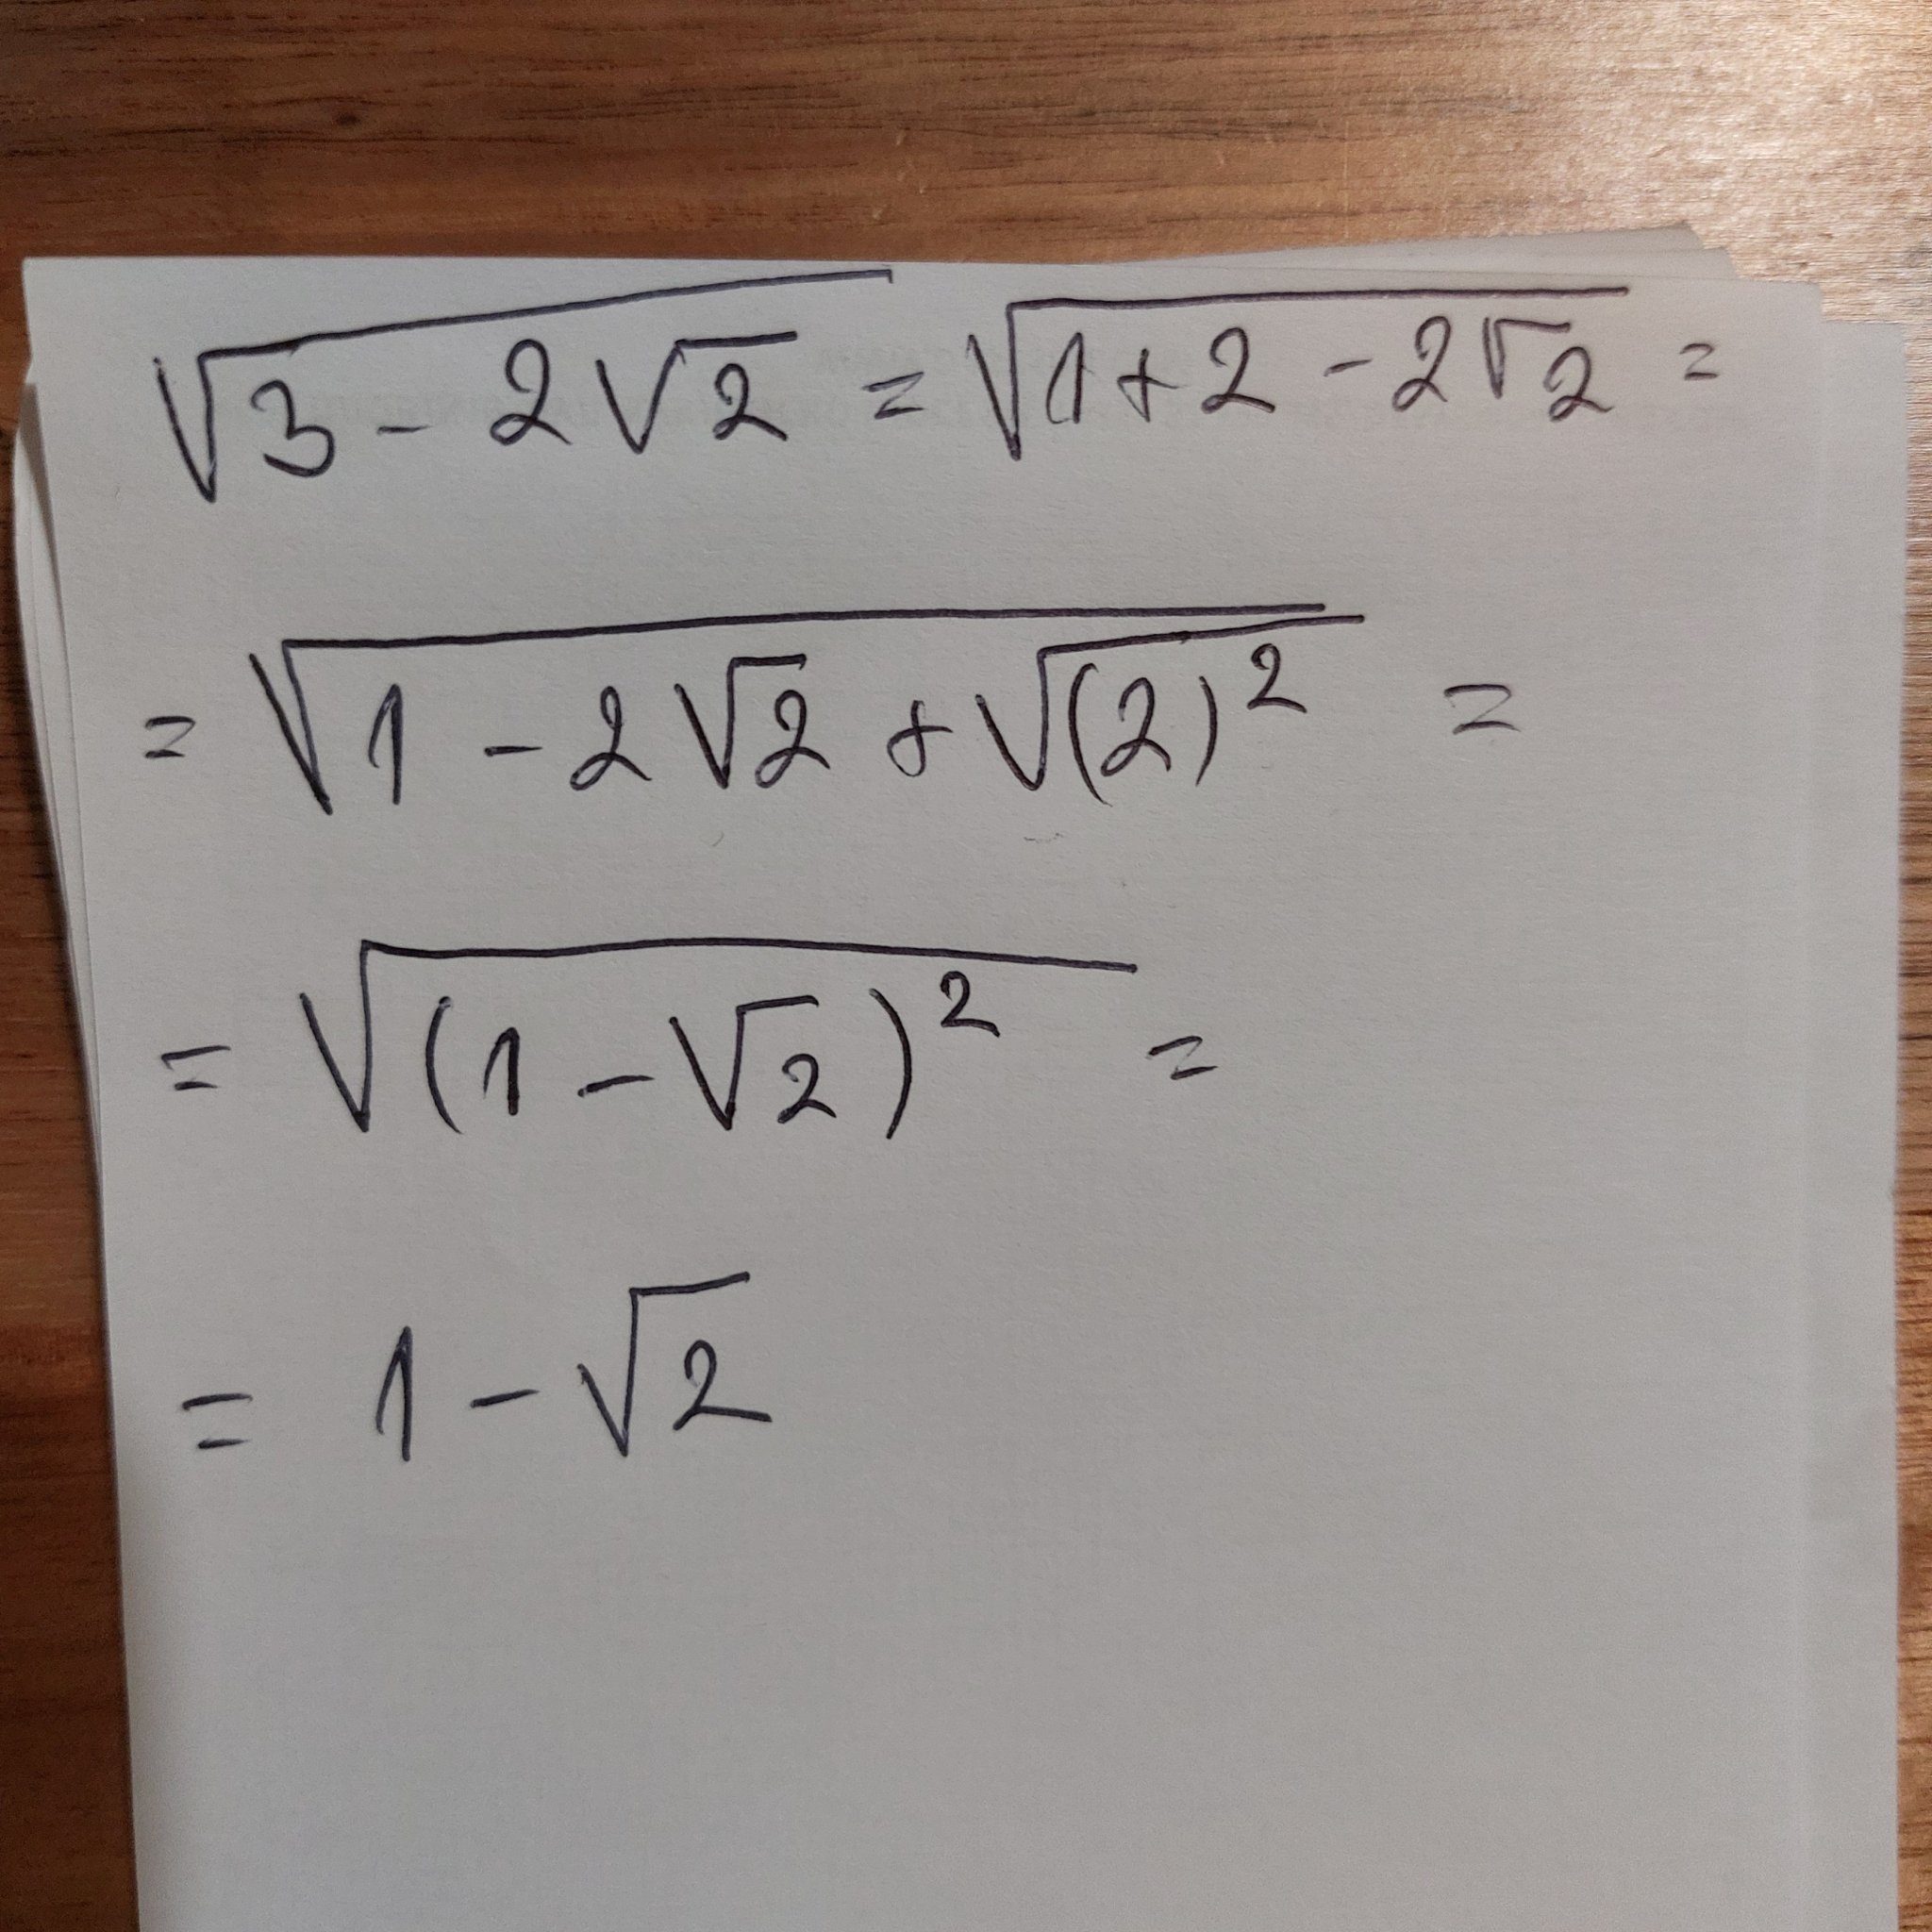 √(3 - 2√2) = √(1 + 2 - 2√2) =
= √(1 - 2√2 + √((2)²)) =
= √((1 - √2)²) =
= 1 - √2